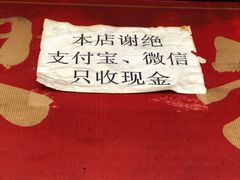 本店谢绝
支付宝、微信
只收现金